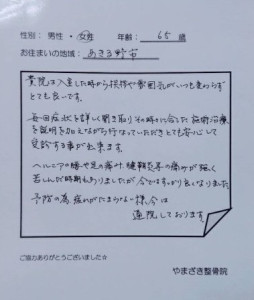 性別： 男性 ・ 女性 年齢： 65 歳
お住まいの地域： あきる野市
貴院は入室した時から挨拶や雰囲気がいつも変わらず
とても良いです。
毎回症状を詳しく聞き取りその時々に合した施術治療
を説明を加えながら行なっていただきとても安心して
受診する事が出来ます。
ヘルニアの腰や足の痺れ、腱鞘炎等の痛みが強く
苦しんだ時期もありましたが今ではすっかり良くなりました
予防の為疲れがたまらない様今は
通院しております。
ご協力ありがとうございました☆
やまざき整骨院